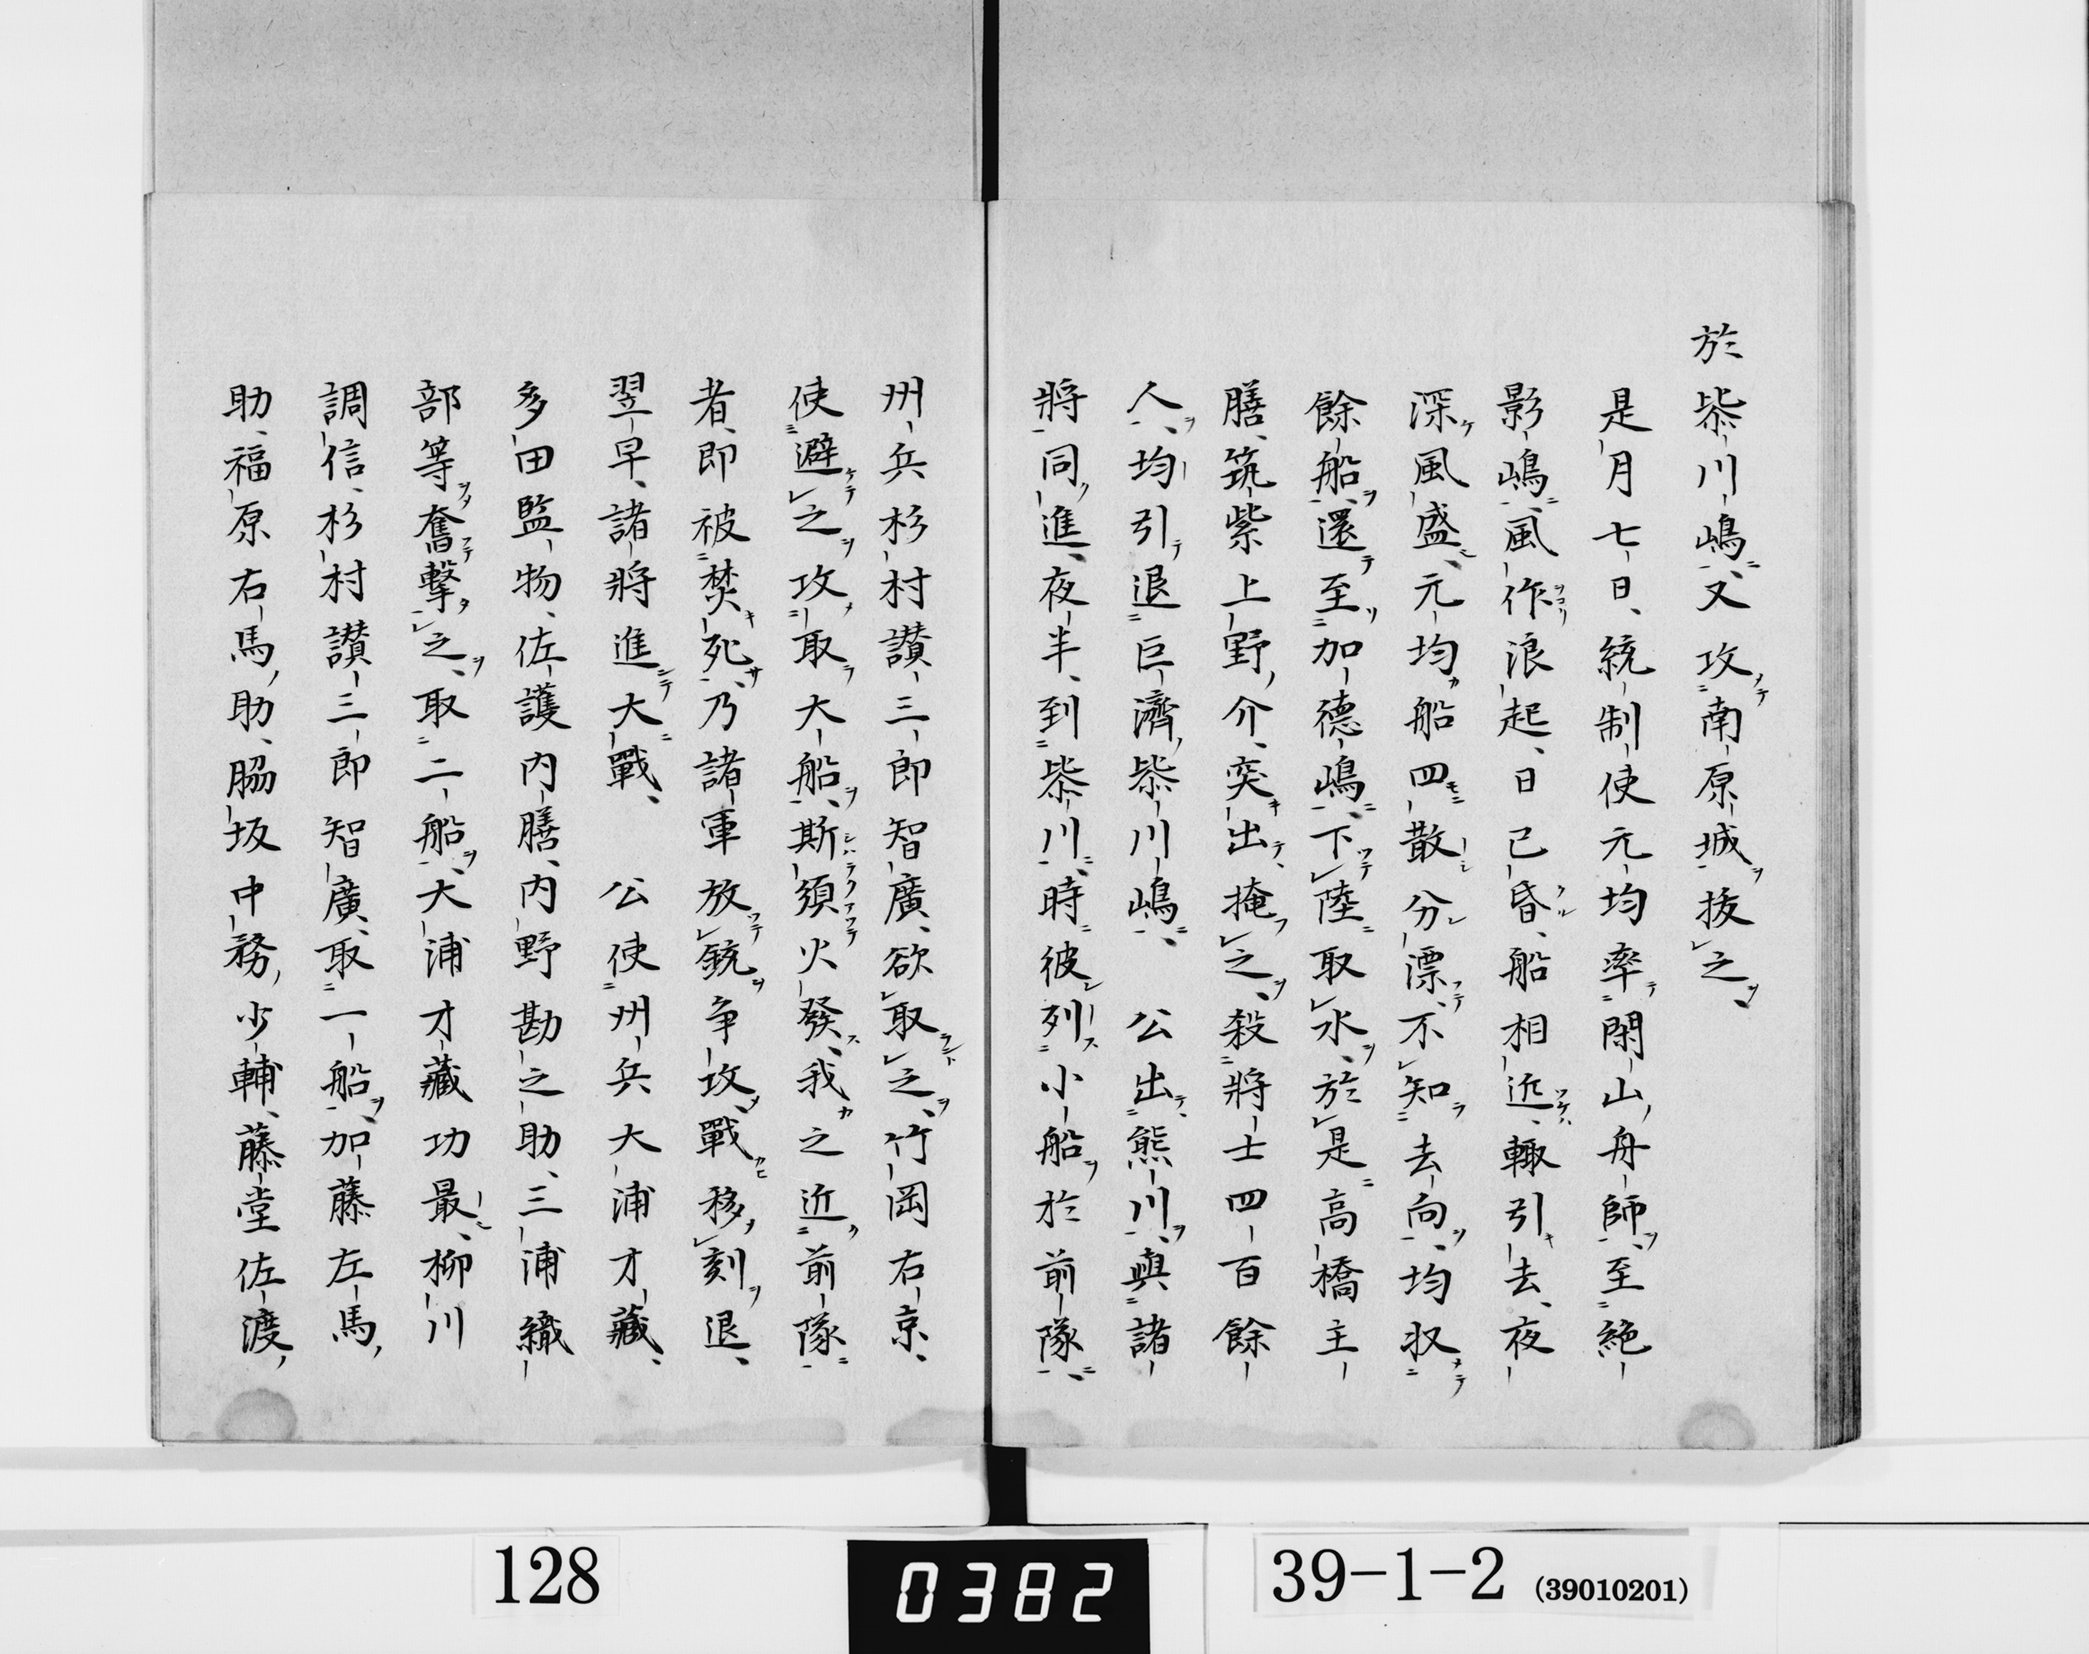 於柒川嶋、又攻南原城抜之、
是月七日、統制使元均率閑山舟師、至絶
影嶋、風作浪起、日已昏、船相近、輙引去、夜
深風盛、元均船四散分漂、不知去向、均収
餘船、還至加德嶋、下陸取水、於是高橋主
膳、筑紫上野介、突出掩之、殺將士四百餘
人、均引退巨濟柒川嶋、公出熊川、與諸
將同進、夜半、到柒川、時彼列小船於前隊、
州兵杉村讃三郎智廣、欲取之、竹岡右京、
使避之攻取大船、斯須火發、我之近前隊
者、即被焚死、乃諸軍放銃争攻、戰移刻退、
翌早、諸將進大戰、公使州兵大浦才藏、
多田監物、佐護内膳、内野勘之助、三浦織
部等奮擊之、取二船、大浦才藏功最、柳川
調信、杉村讃三郎智廣、取一船、加藤左馬
助、福原右馬助、脇坂中務少輔、藤堂佐渡
128
0382
39-1-2 (39010201)